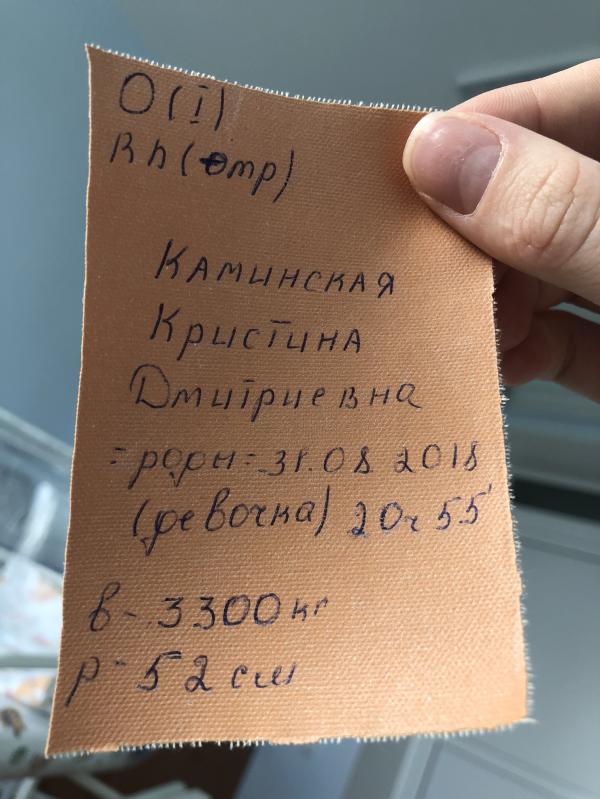 O(I)
Rh(отр)
Каминская
Кристина
Дмитриевна
31.08 2018
(девочка) 20ч 55'
в- 3300 кг
р- 52 см